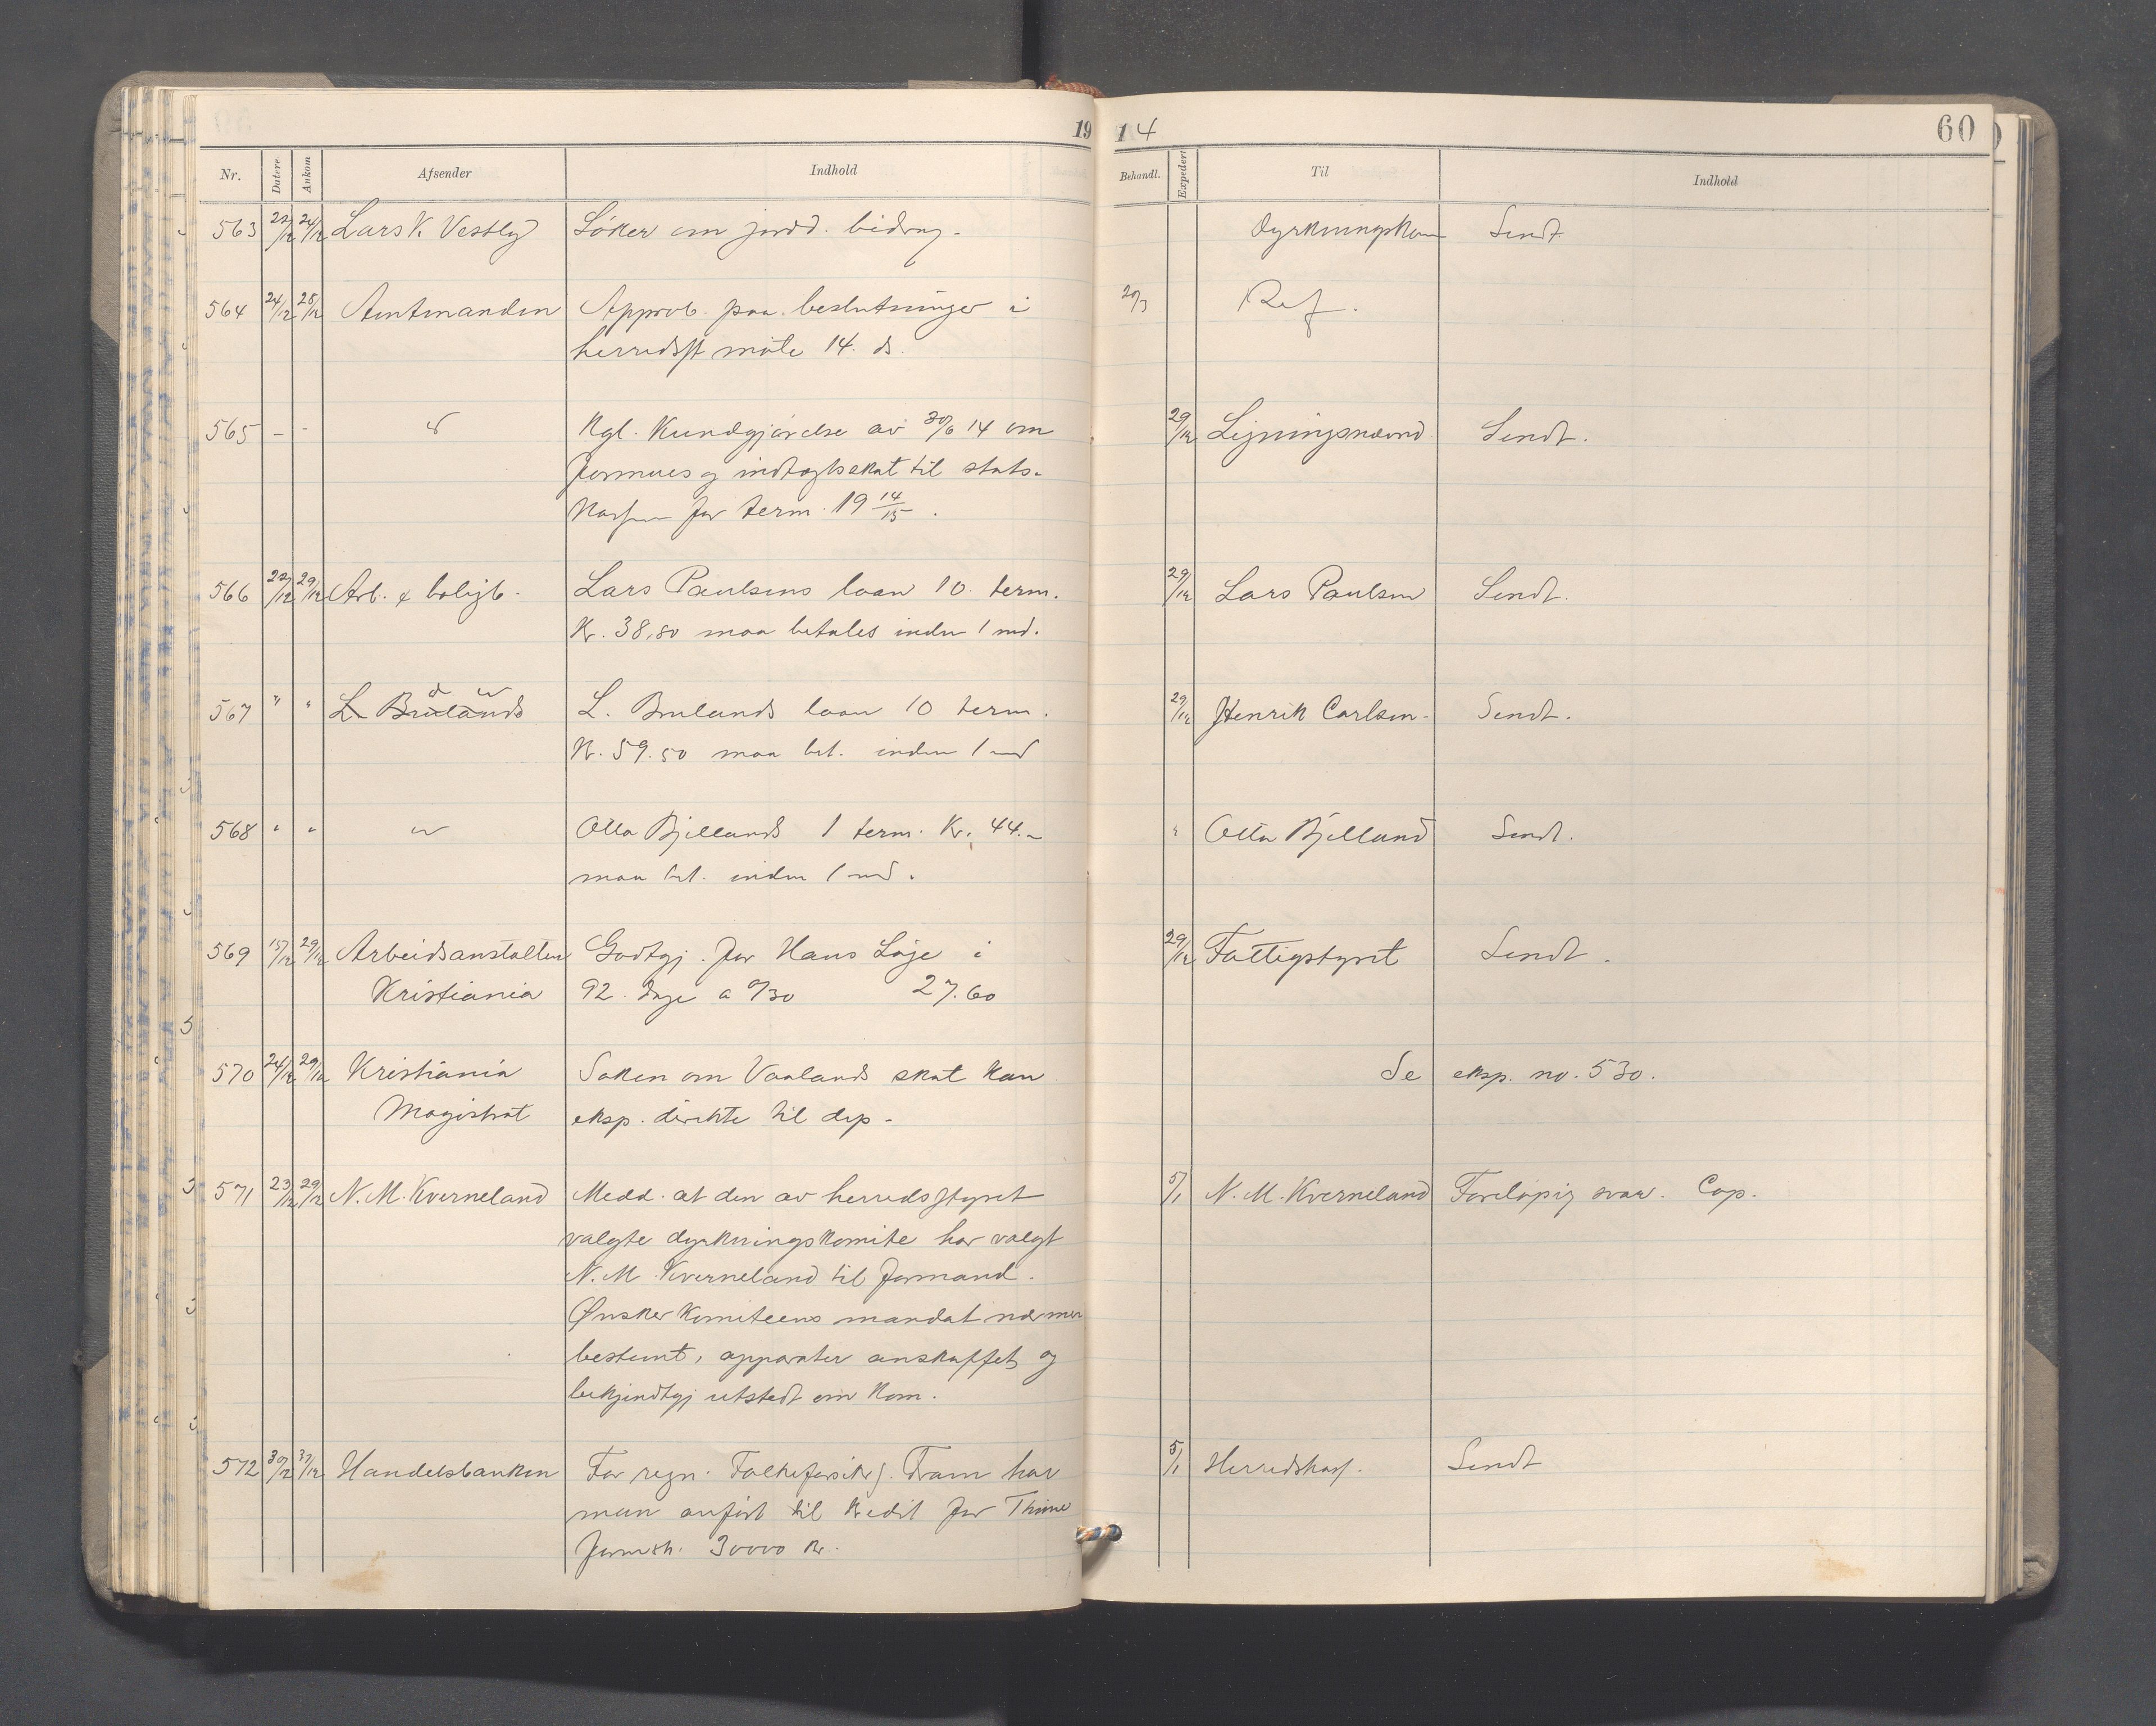 19 14 60
Nr. Datere Ankom Afsender Indhold Behandl. Expedert Til Indhold
563 22/12 24/12 Lars K. Vestly Söker om jordd. bidrag. Dyrkningskom Sendt.
564 24/12 28/12 Amtmanden Approb. paa beslutninger i 20/3 Ref.
herredsst möte 14. ds.
565 - - Kgl. Kundgjörelse av 30/6 14 om 29/12 Ligningsnævnd Sendt.
formues og indtægtsskat til stats-
kassen for term. 19 14/15.
566 22/12 29/12 Arb. & boligb. Lars Paulsens laan 10. term. 29/12 Lars Paulsen Sendt.
Kr. 38,80 maa betales inden 1 md.
567 " " L. Brulands L. Brulands laan 10 term. 29/12 Henrik Carlsen. Sendt.
Kr. 59.50 maa bet. inden 1 md
568 " " Otto Bjellands 1 term. Kr. 44.- " Otto Bjelland Sendt.
maa bet. inden 1 md.
569 15/12 29/12 Arbeidsanstalten Godtgj. for Hans Löge i 29/12 Fattigstyret Sendt.
Kristiania 92. dage a 0/30 27.60
570 24/12 29/12 Kristiania Saken om Vaalands skat kan Se eksp. no. 530.
Magistrat eksp. direkte til dep.
571 23/12 29/12 N. M. Kverneland Medd. at den av herredsstyret 5/1 N. M. Kverneland Foreløpig svar. Cop.
valgte dyrkningskomite har valgt
N. M. Kverneland til formand.
Ønsker Komiteens mandat nærmere
bestemt, apparater anskaffet og
bekjendtgj utstedt om kom.
572 30/12 31/12 Handelsbanken For regn. Folkeforsikr. Fram har 5/1 Herredskas. Sendt
man anfört til kredit for Thime
formsk. 30000 kr.